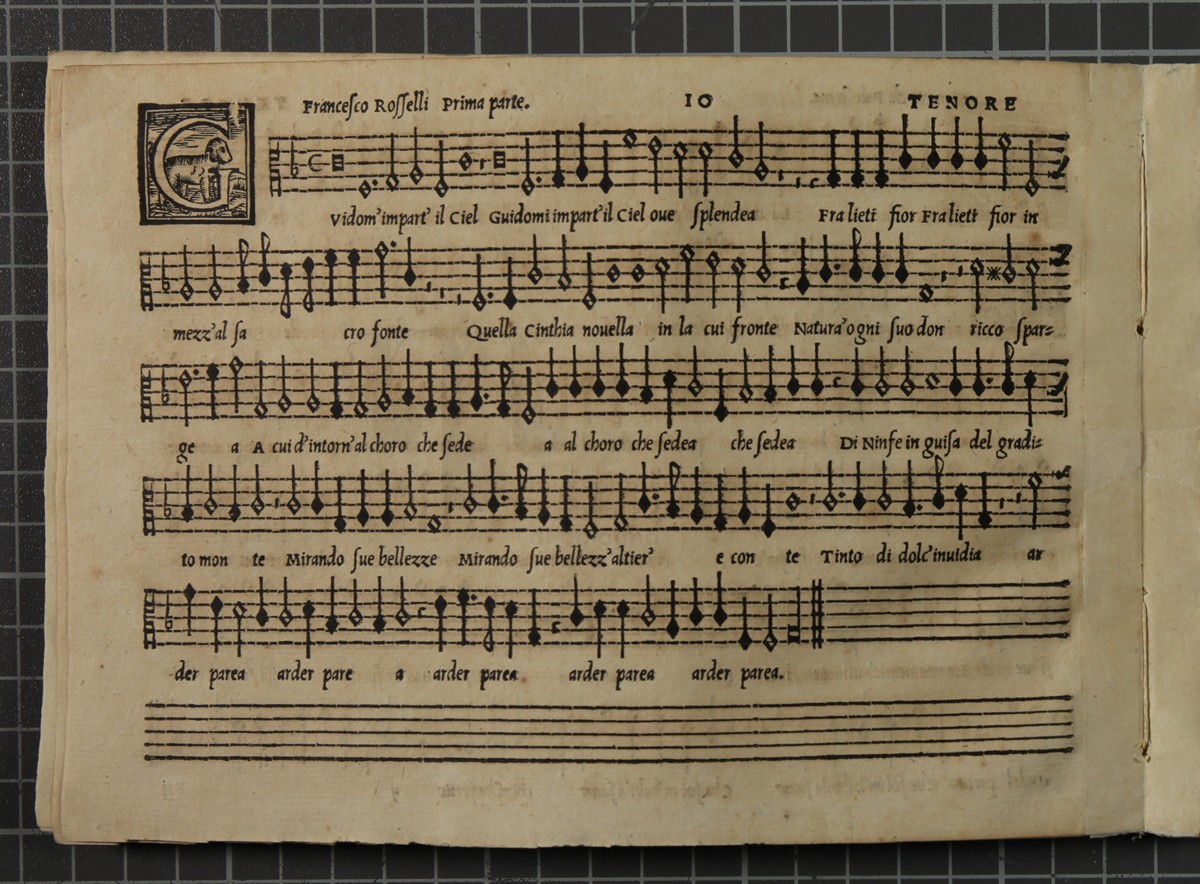 Francesco Rosselli Prima parte. 10 TENORE
GVidom'impart' il Ciel Guidomi impart' il Ciel oue splendea Fra lieti fior Fra lieti fior in
mezz'al sa cro fonte Quella Cinthia nouella in la cui fronte Natura'ogni suo don ricco spar=
ge a A cui d'intorn'al choro che sede a al choro che sedea che sedea Di Ninfe in guisa del gradi=
to mon te Mirando sue bellezze Mirando sue bellezz'altier' e con te Tinto di dolc'inuidia ar
der parea arder pare a arder parea arder parea arder parea.